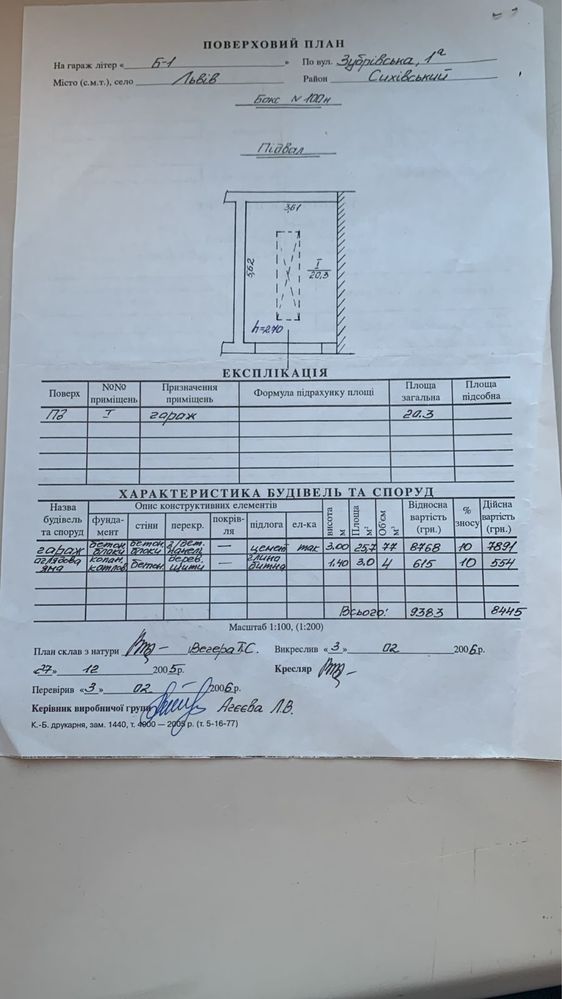 ПОВЕРХОВИЙ ПЛАН
На гараж літер « Б-1 » По вул. Зубрівська, 1а
Місто (с.м.т.), село Львів Район Сихівський
Бокс №100н
Підвал
3,61
5,62
I
20,3
h=270
ЕКСПЛІКАЦІЯ
Поверх №№ приміщень Призначення приміщень Формула підрахунку площі Площа загальна Площа підсобна
Пд I гараж 20.3
ХАРАКТЕРИСТИКА БУДІВЕЛЬ ТА СПОРУД
Назва будівель та споруд Опис конструктивних елементів висота м Площа м² Об'єм м³ Відносна вартість (грн.) % зносу Дійсна вартість (грн.)
фунда-мент стіни перекр. покрів-ля підлога ел-ка
гараж бетон. блоки бетон. блоки з/бет. панель — цемент так 3.00 25,7 77 8768 10 7891
оглядова яма копан. котлов. бетон. дерев. щити — глино битна 1.40 3.0 4 615 10 554
Всього: 9383 8445
Масштаб 1:100, (1:200)
План склав з натури Вегера Т.С. Викреслив « 3 » 02 2006р.
«27» 12 2005р. Кресляр
Перевірив «3 » 02 2006р.
Керівник виробничої групи Агеєва Л.В.
К.-Б. друкарня, зам. 1440, т. 4000 — 2005 р. (т. 5-16-77)